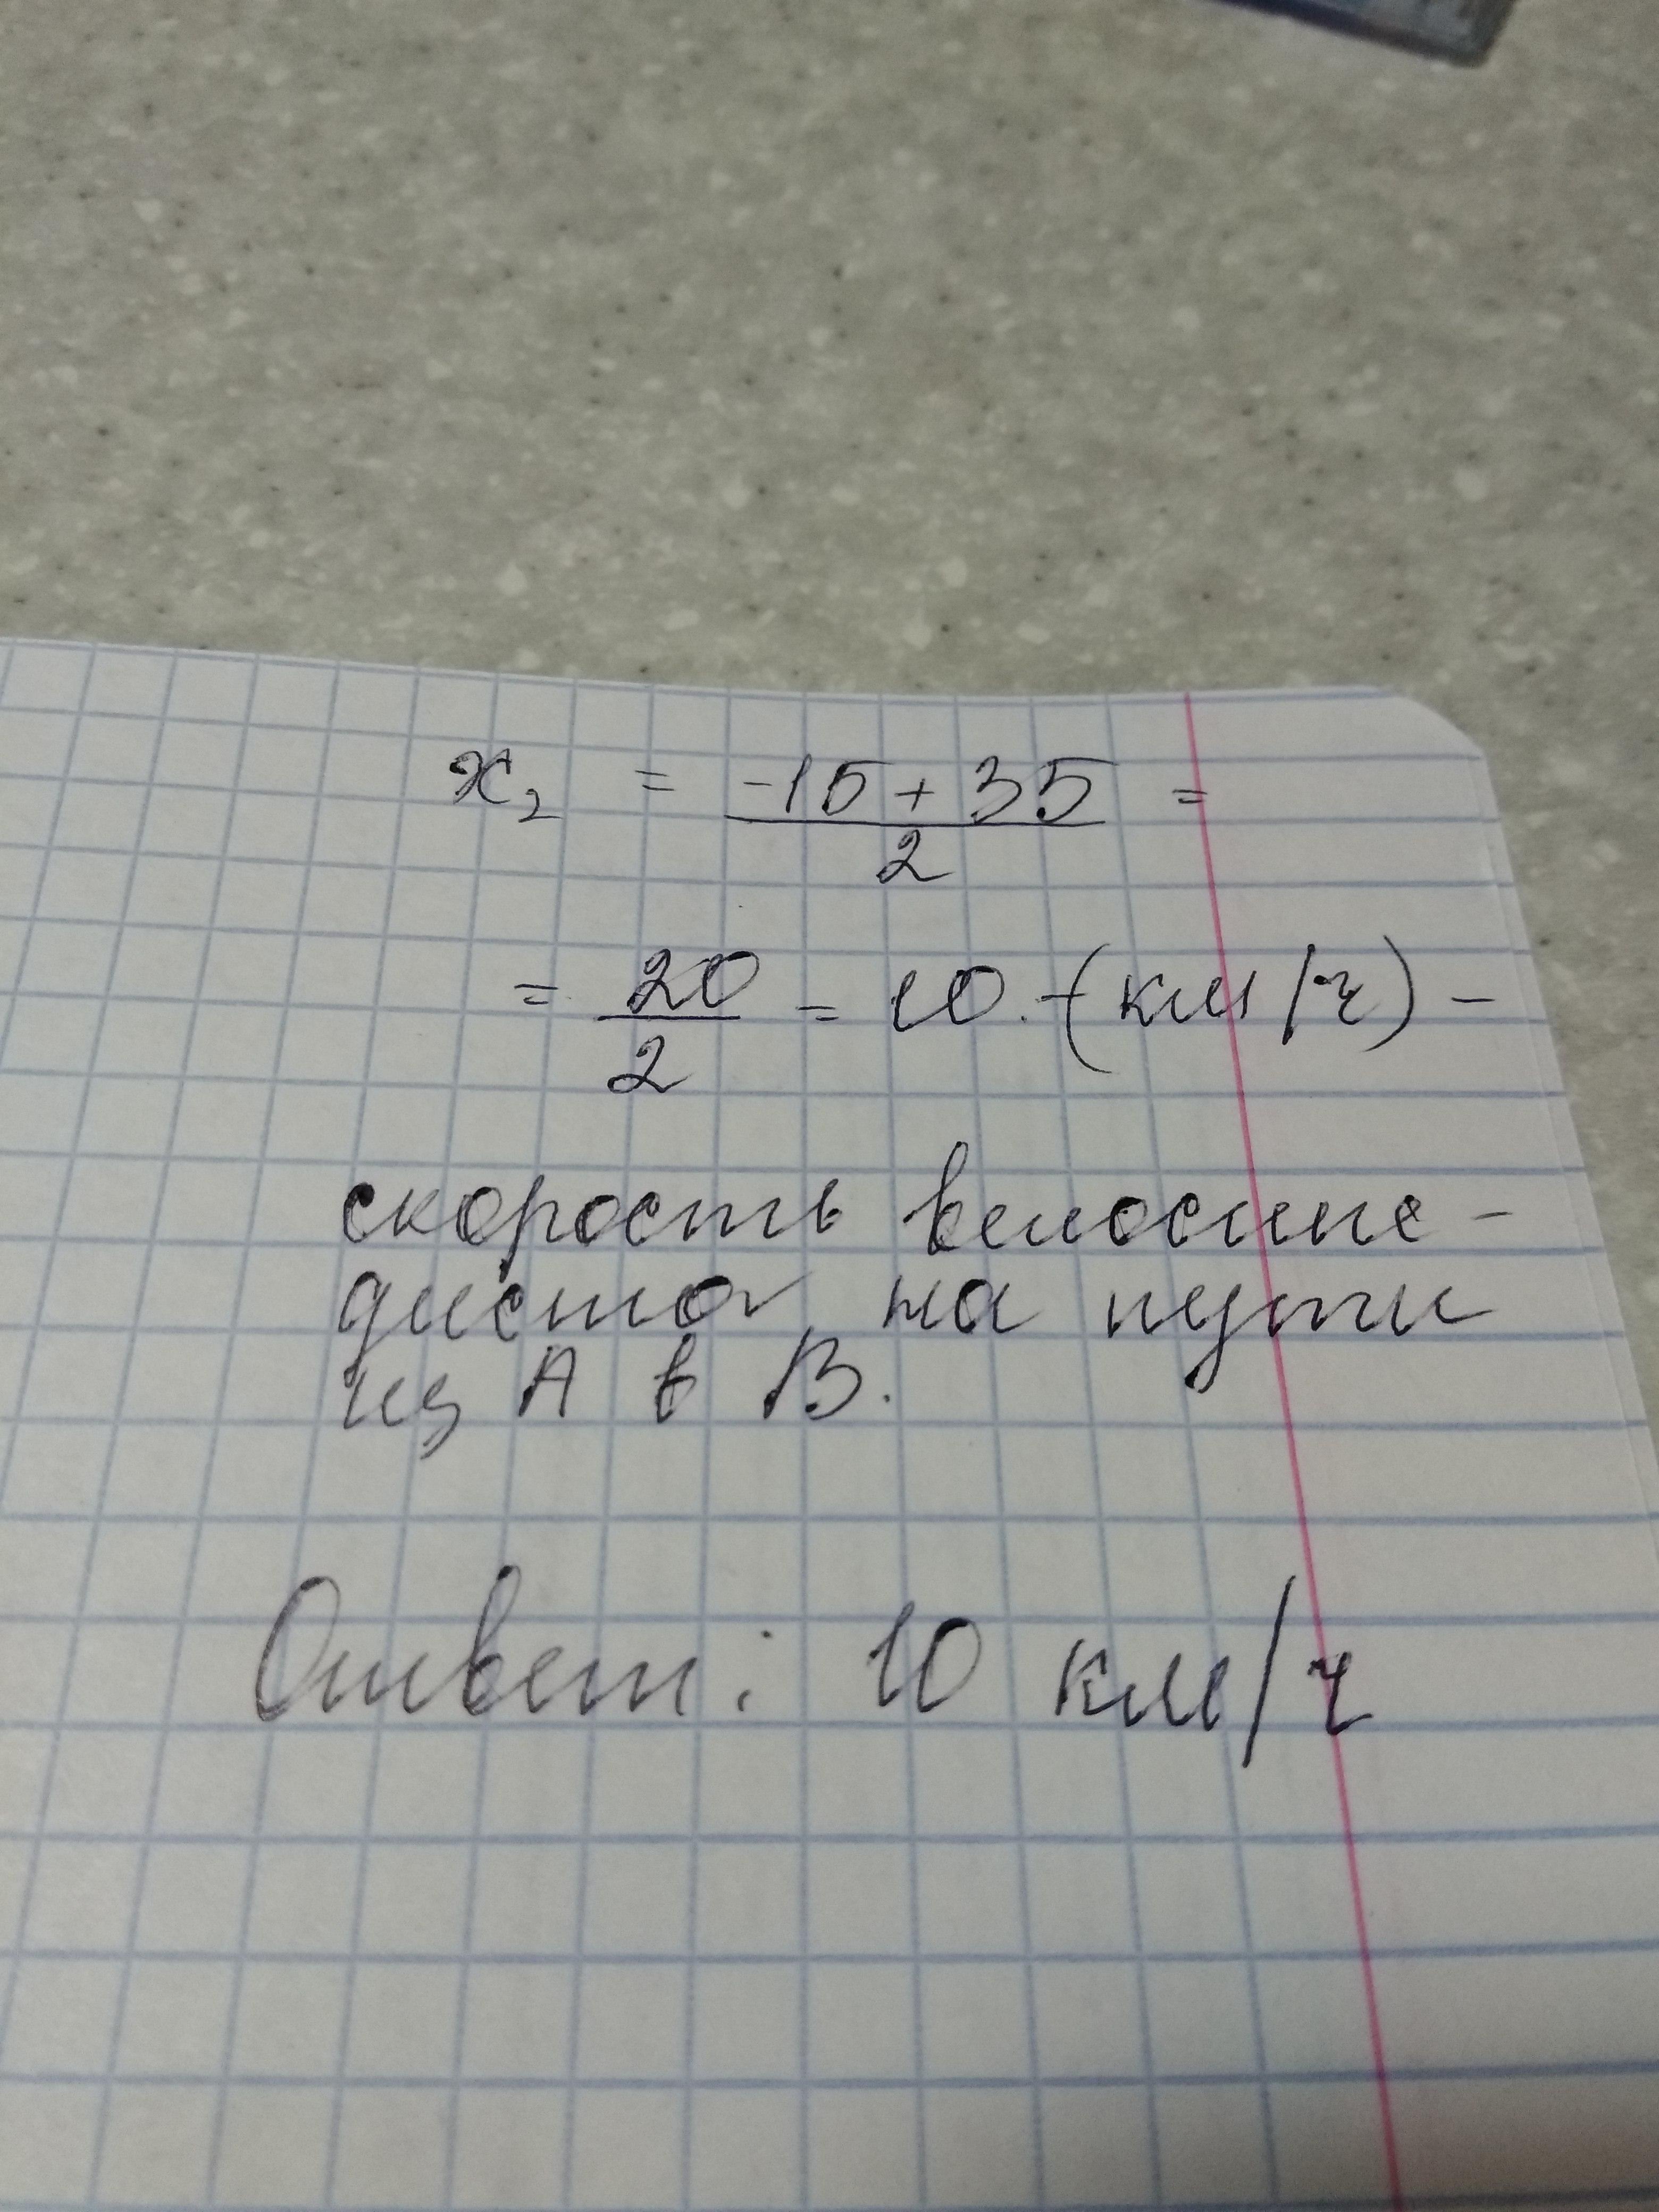 x₂ = (-15 + 35)/2 =
= 20/2 = 10 - (км/ч) -
скорость велосипе-
диста на пути
из А в В.
Ответ: 10 км/ч